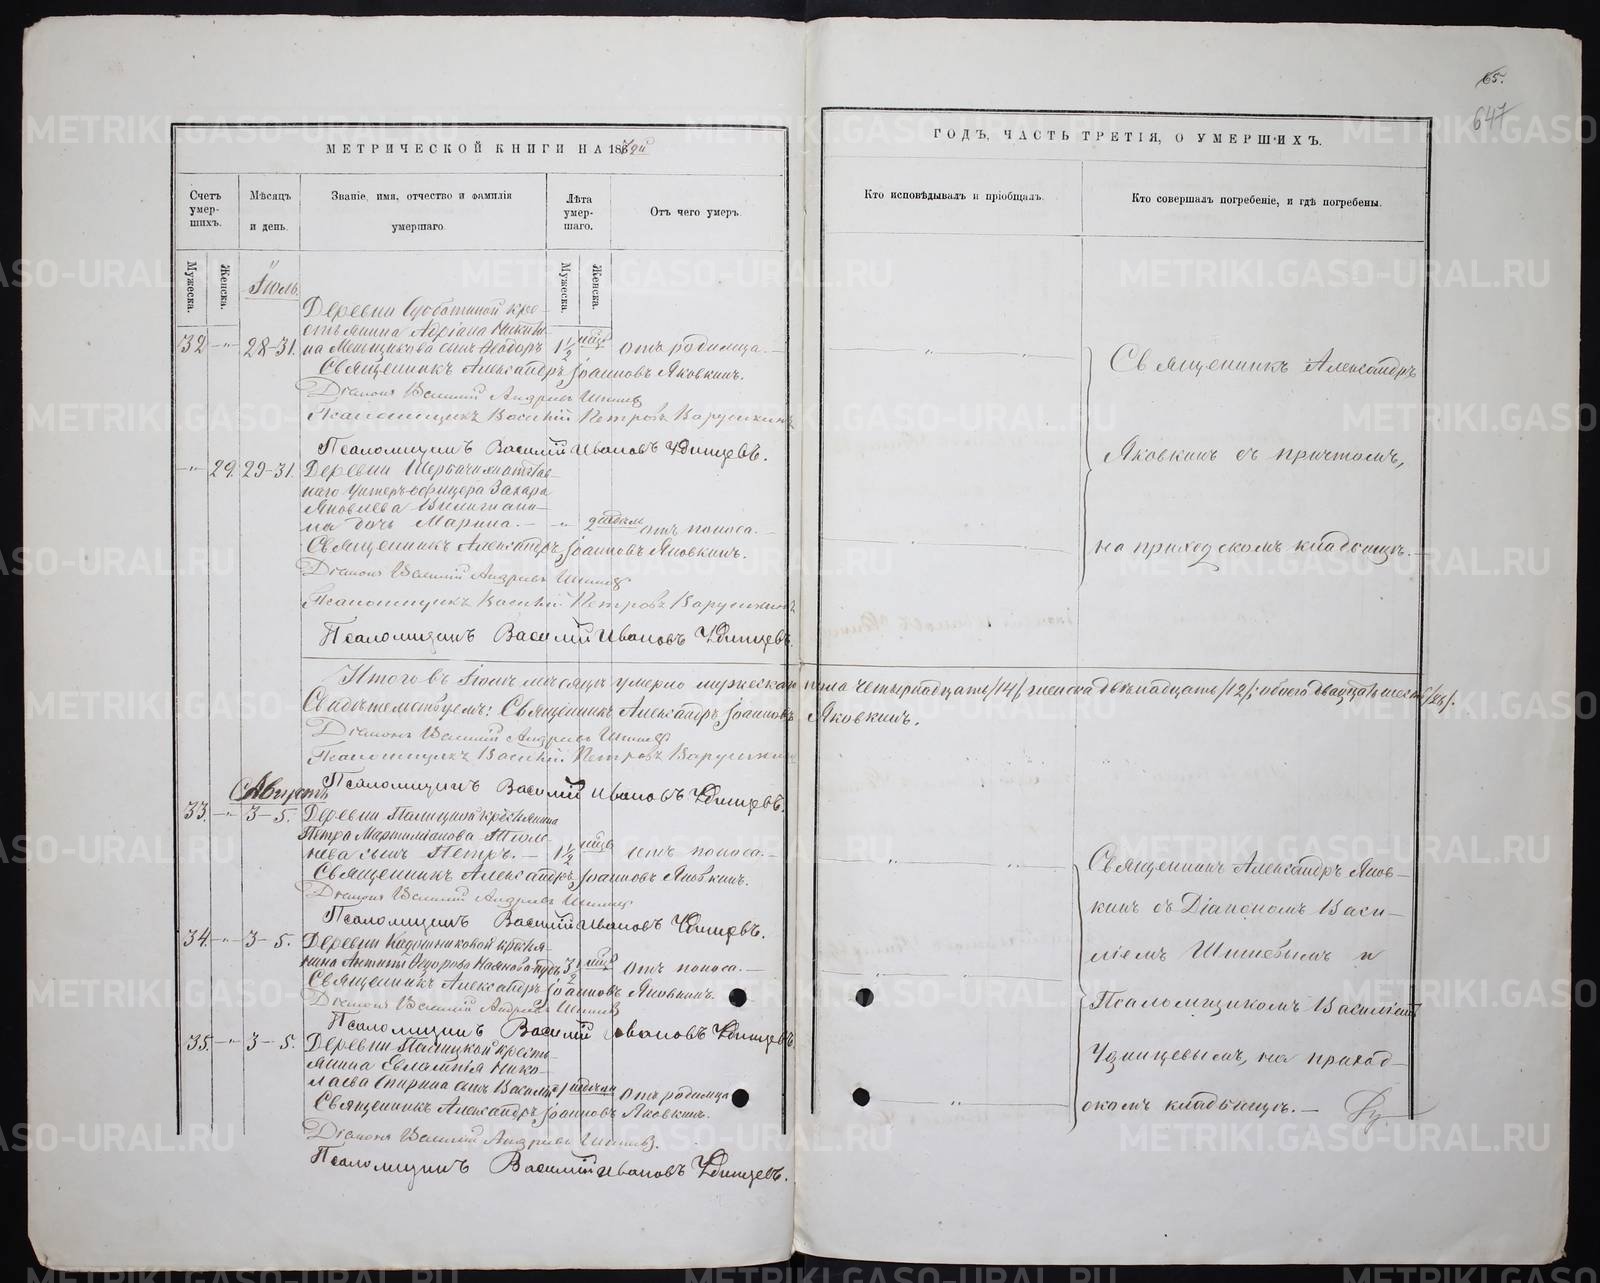 65.
647
МЕТРИЧЕСКОЙ КНИГИ НА 186
ГОДЪ, ЧАСТЬ ТРЕТІЯ, О УМЕРШИХЪ.
Счетъ умер-шихъ.
Мѣсяцъ и день.
Званіе, имя, отчество и фамилія умершаго.
Лѣта умер-шаго.
Отъ чего умеръ.
Кто исповѣдывалъ и пріобщалъ.
Кто совершалъ погребеніе, и гдѣ погребены.
Мужеска.
Женска.
Мужеска.
Женска.
Іюль
Деревни Субботиной кре-
стьянина Адріана Никити-
32 -"- 28-31. на Меньщикова сынъ Ѳеодоръ 1 1/2 мѣся отъ родимца.-
Священникъ Александръ Іоанновъ Яковкинъ.
Діаконъ Василій Андреевъ Шишевъ
Псаломщикъ Василій Петровъ Варушкинъ
Псаломщикъ Василій Ивановъ Удинцевъ.
-"- 29. 29-31. Деревни
наго унтеръ-офицера Захара
Яковлева
на дочь Марина.- -"- отъ поноса.-
Священникъ Александръ Іоанновъ Яковкинъ.
Діаконъ Василій Андреевъ Шишевъ
Псаломщикъ Василій Петровъ Варушкинъ
Псаломщикъ Василій Ивановъ Удинцевъ.
Священникъ Александръ
Яковкинъ съ причтомъ,
на приходскомъ кладбищѣ.
Итого въ Іюлѣ мѣсяцѣ умерло мужескаго пола четырнадцать /14/, женска двѣнадцать /12/; обоего двадцать шесть /26/.
Свидѣтельствуемъ: Священникъ Александръ Іоанновъ Яковкинъ.
Діаконъ Василій Андреевъ Шишевъ
Псаломщикъ Василій Петровъ Варушкинъ
Псаломщикъ Василій Ивановъ Удинцевъ.
Августъ
33. -"- 3-5. Деревни Палицкой крестьянина
Петра Мартиміанова
сынъ Петръ.- 1 1/2 мѣся отъ поноса.-
Священникъ Александръ Іоанновъ Яковкинъ.
Діаконъ Василій Андреевъ Шишевъ
Псаломщикъ Василій Ивановъ Удинцевъ.
34. -"- 3-5. Деревни Кадошниковой крестья-
нина Ѳедорова 3 1/2 мѣся отъ поноса.-
Священникъ Александръ Іоанновъ Яковкинъ.
Діаконъ Василій Андреевъ Шишевъ
Псаломщикъ Василій Ивановъ Удинцевъ.
35. -"- 3-5. Деревни Палицкой кресть-
янина Евлампія Нико-
лаева Спирина сынъ Василій отъ родимца
Священникъ Александръ Іоанновъ Яковкинъ.
Діаконъ Василій Андреевъ Шишевъ.
Псаломщикъ Василій Ивановъ Удинцевъ.
Священникъ Александръ Яков-
кинъ съ Діакономъ Васи-
ліемъ Шишевымъ и
Псаломщикомъ Василіемъ
Удинцевымъ, на приход-
скомъ кладбищѣ.-
METRIKI.GASO-URAL.RU